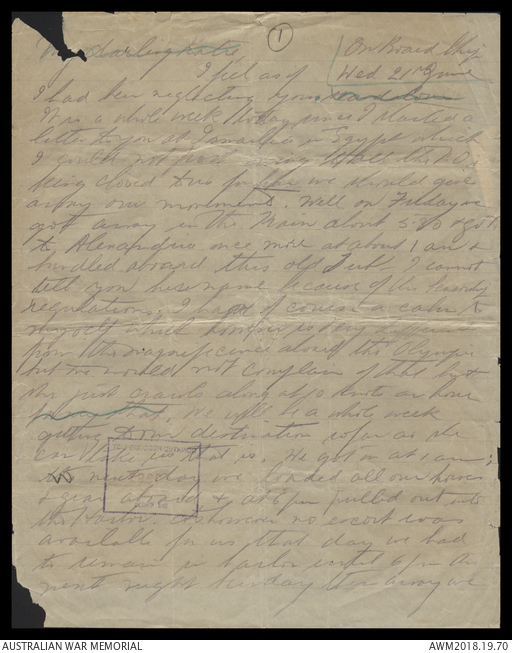 1
My darling Katie
On Board Ship
Wed 21st June
I feel as if
I had been neglecting you
It is a whole week today since I started a
letter to you at Ismailia in Egypt which
I could not
being closed to us for fear we should give
away our movements. Well on Friday we
got away in the Train about 5.30 & got
to Alexandria once more at about 1 am &
bundled aboard this old Tub - I cannot
tell you her name because of the Censorship
regulations. I have of course a cabin to
myself which however is very different
from the magnificence aboard the Olympic
but one would not complain of that but
she just crawls along at 10 knots an hour
We will be a whole week
getting to our destination as far as she
can take us that is. We got on at 1 am;
next day we loaded all our horses
& gear aboard & at 6 pm pulled out into
the Harbor. As however no escort was
available for us that day we had
to remain in harbor until 6 pm the
next night Sunday then away we
AUSTRALIAN WAR MEMORIAL
AWM2018.19.70